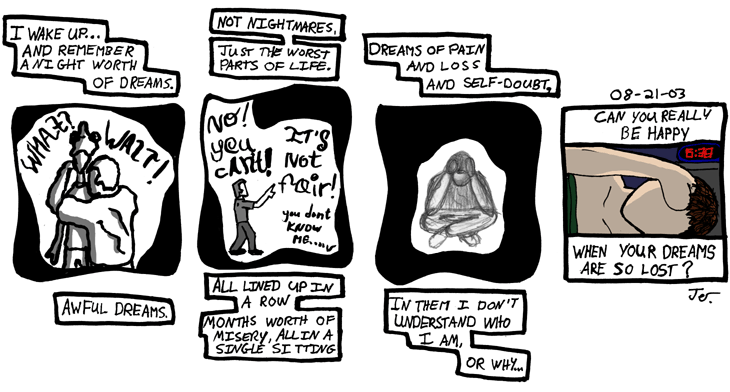 I WAKE UP...
AND REMEMBER
A NIGHT WORTH
OF DREAMS.
WHAT?
WAIT!
AWFUL DREAMS.
NOT NIGHTMARES,
JUST THE WORST
PARTS OF LIFE.
NO!
YOU
CAN'T!
IT'S
NOT
fair!
you don't
KNOW
ME....
ALL LINED UP IN
A ROW
MONTHS WORTH OF
MISERY, ALL IN A
SINGLE SITTING
DREAMS OF PAIN
AND LOSS
AND SELF-DOUBT.
IN THEM I DON'T
UNDERSTAND WHO
I AM,
OR WHY...
08-21-03
CAN YOU REALLY
BE HAPPY
WHEN YOUR DREAMS
ARE SO LOST?